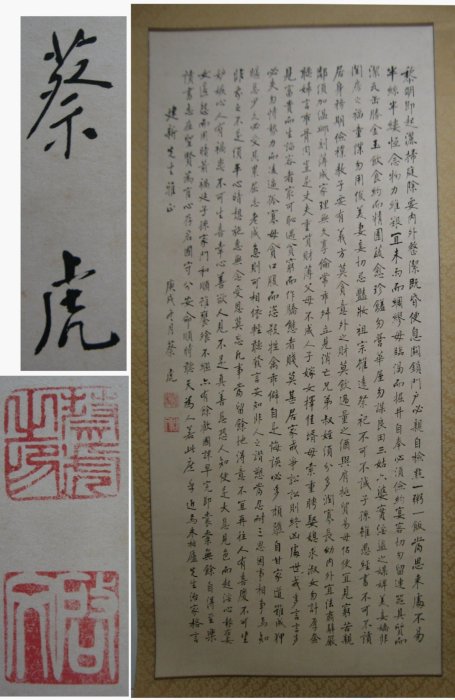 蔡虎
黎明即起灑掃庭除要內外整潔既昏便息關鎖門戶必親自檢點一粥一飯當思來處不易
半絲半縷恒念物力維艱宜未雨而綢繆毋臨渴而掘井自奉必須儉約宴客切勿留連器具質而
潔瓦缶勝金玉飲食約而精園蔬愈珍饈勿營華屋勿謀良田三姑六婆實淫盜之媒婢美妾嬌非
閨房之福童僕勿用俊美妻妾切忌豔妝祖宗雖遠祭祀不可不誠子孫雖愚經書不可不讀
居身務期儉樸教子要有義方莫貪意外之財莫飲過量之酒與肩挑貿易毋佔便宜見窮苦親
鄰須加溫卹刻薄成家理無久享倫常乖舛立見消亡兄弟叔姪須分多潤寡長幼內外宜法肅辭嚴
聽婦言乖骨肉豈是丈夫重貲財薄父母不成人子嫁女擇佳壻毋索重聘娶媳求淑女勿計厚奩
見富貴而生諂容者最可恥遇貧窮而作驕態者賤莫甚居家戒爭訟訟則終凶處世戒多言言多
必失勿恃勢力而凌逼孤寡毋貪口腹而恣殺牲禽乖僻自是悔誤必多頹惰自甘家道難成狎
暱惡少久必受其累屈志老成急則可相依輕聽發言安知非人之譖愬當忍耐三思因事相爭焉知
非我之不是須平心暗想施惠無念受恩莫忘凡事當留餘地得意不宜再往人有喜慶不可生
妒嫉心人有禍患不可生喜幸心善欲人見不是真善惡恐人知便是大惡見色而起淫心報在
妻女匿怨而用暗箭禍延子孫家門和順雖饔飧不繼亦有餘歡國課早完即囊橐無餘自得至樂
讀書志在聖賢為官心存君國守分安命順時聽天為人若此庶乎近焉朱柏廬先生治家格言
建新先生雅正 庚戌 月蔡虎